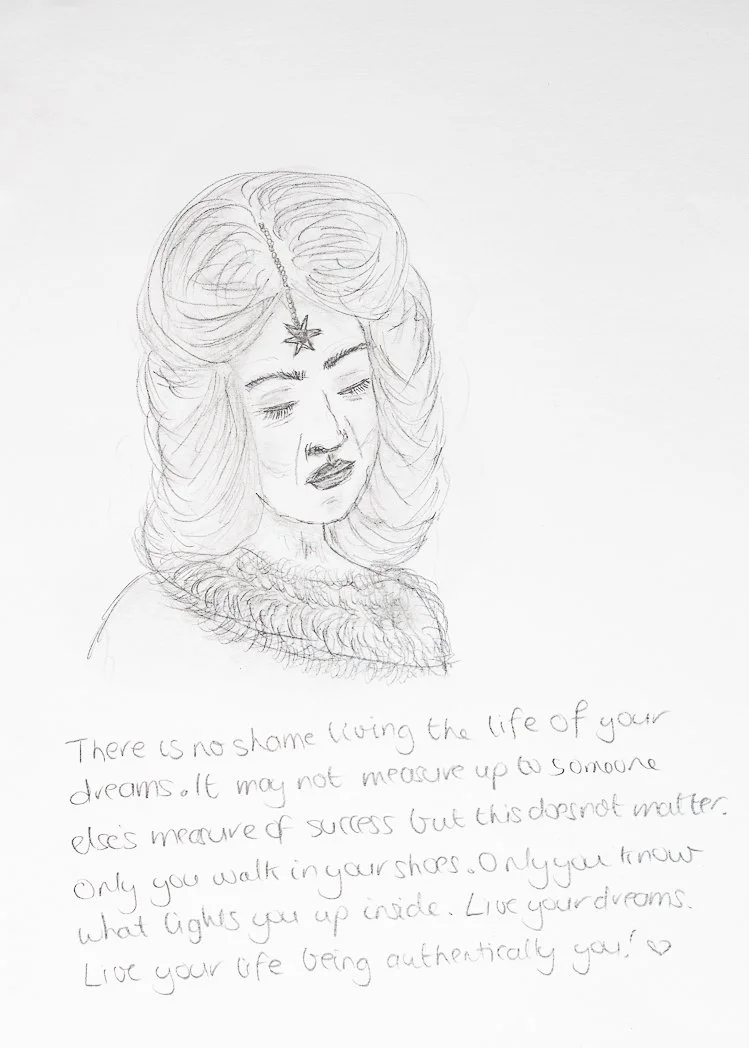 There is no shame living the life of your
dreams. It may not measure up to someone
else's measure of success but this does not matter.
Only you walk in your shoes. Only you know
what lights you up inside. Live your dreams.
Live your life being authentically you! ♡